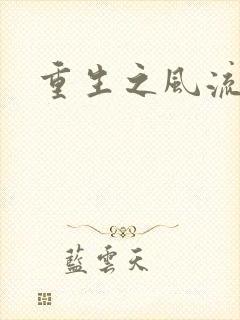 重生之風流
藍雲天